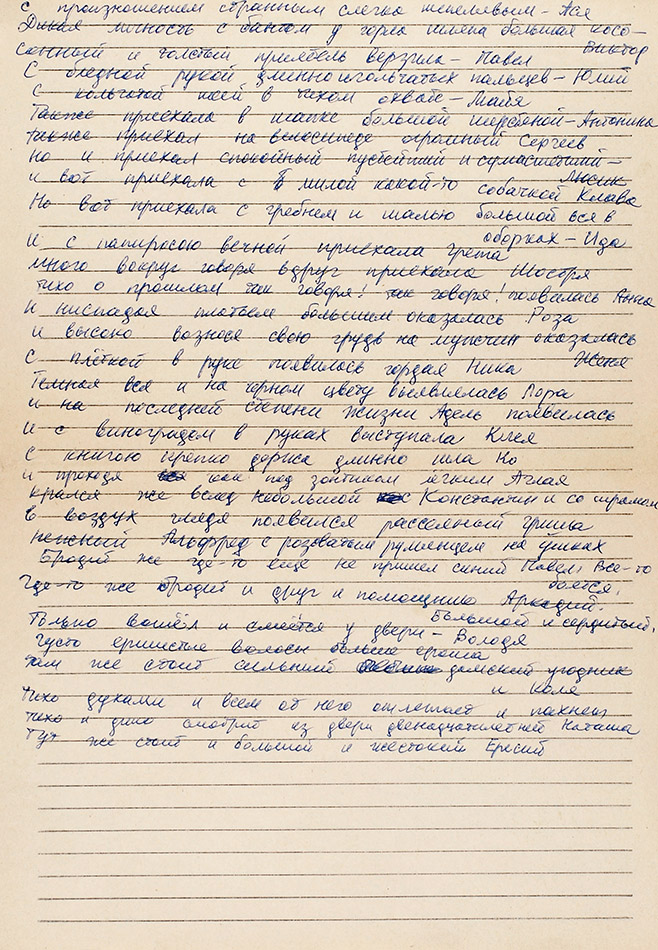 с произношением странным слегка шепелявым – Ася
Дикая личность с бантом у горла шляпа большая косо –
Виктор
санный и толстый приятель верзила – Павел
С бледной рукой змеино игольчатых пальцев – Юлий
С кольчатой шеей в тихом охвате – Майя
Также приехала в шапке большой шерстяной – Антонина
также приехал на велосипеде огромный Сергеев
но и приехал спокойный пустейший и сумасшедший –
Люсик
и вот приехала с милой какой-то собачкой Клава
Но вот приехала с гребнем и шалью большой вся в
оборках – Ида
И с папиросою вечной приехала Грета
много вокруг говоря вдруг приехала
тихо о прошлом так говоря! так говоря! появилась Анна
И ниспадая платьем большим оказалась Роза
и высоко вознося свою грудь на мужчин оказалась
Женя
С плёткой в руке появилась гордая Ника
Темная вся и на черном цвету выявлялась Лора
и на последней степени жизни Адель появилась
И с виноградом в руках выступала Клея
С книгою крепко длинно шла Ко
и проходя как под зонтиком лёгким Аглая
крался же вслед небольшой Константин и со шрамом
в воздух глядя появился рассеяный Гриша
Нежный Альфред с розоватым румянцем на ушках
Бродит же где-то еще не пришел синий Павел! Все-то
боятся!
Где-то же бродит и друг и помощник Аркадий.
Большой и сердитый!
Только вошёл и смеётся у двери – Володя
густо ершистые волосы больше ерошa
там же стоит сильный дамский угодник
и Коля
Тихо духами и всем от него отлетает и пахнет
тихо и дико смотрит из двери двенадцатилетней Наташа
Тут же стоит и большой и жестокий Ересий